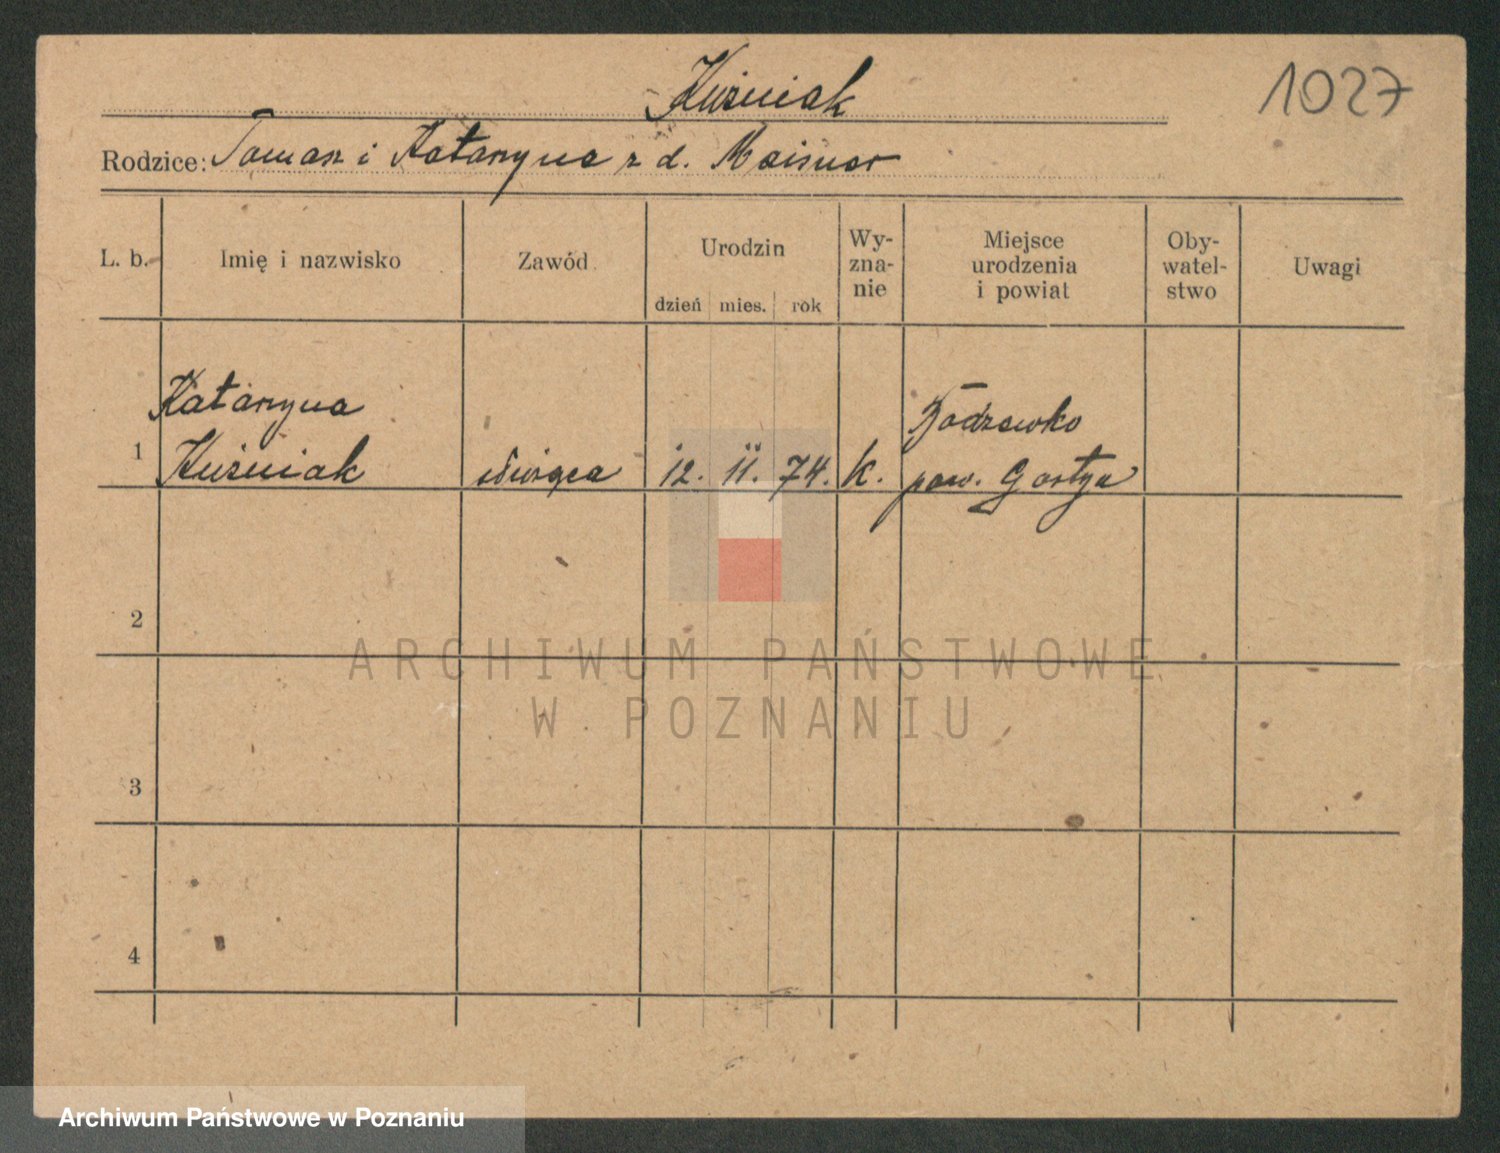 Kuźniak
1027
Rodzice: Tomasz i Katarzyna z d. Maisner
L. b. Imię i nazwisko Zawód Urodzin dzień mies. rok Wy-zna-nie Miejsce urodzenia i powiat Oby-watel-stwo Uwagi
Katarzyna
Bodzewko
1 Kuźniak 12. 11. 74. k. pow. Gostyń
2
ARCHIWUM PAŃSTWOWE
W POZNANIU
3
4
Archiwum Państwowe w Poznaniu